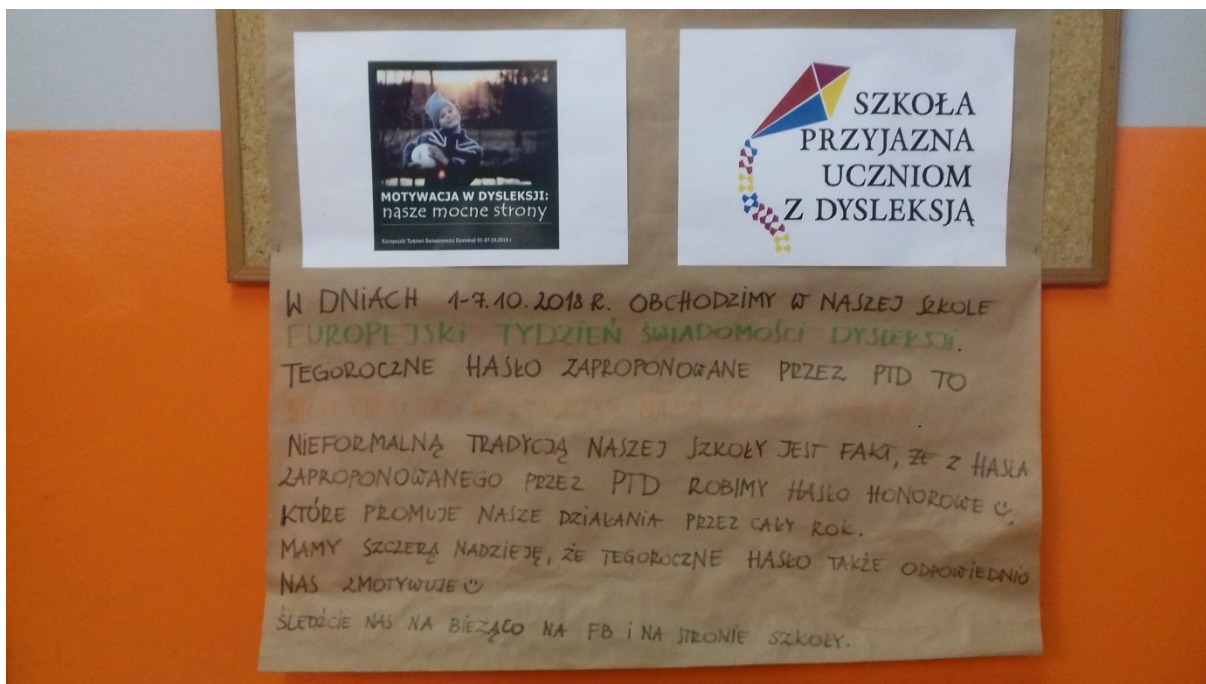 MOTYWACJA W DYSLEKSJI:
nasze mocne strony
Europejski Tydzień Świadomości Dysleksji 01-07.10.2018 r.
SZKOŁA
PRZYJAZNA
UCZNIOM
Z DYSLEKSJĄ
W DNiACH 1-7.10.2018 R. OBCHODZIMY W NASZEJ SZKOLE
EUROPEJSKi TYDZIEŃ ŚWIADOMOŚCi DYSLEKSJI.
TEGOROCZNE HASŁO ZAPROPONOWANE PRZEZ PTD TO
MOTYWACJA W DYSLEKSJI: NASZE MOCNE STRONY.
NIEFORMALNĄ TRADYCJĄ NASZEJ SZKOŁY JEST FAKT, ŻE Z HASŁA
ZAPROPONOWANEGO PRZEZ PTD ROBIMY HASŁO HONOROWE ☺,
KTÓRE PROMUJE NASZE DZIAŁANIA PRZEZ CAŁY ROK.
MAMY SZCZERĄ NADZIEJĘ, ŻE TEGOROCZNE HASŁO TAKŻE ODPOWIEDNIO
NAS ZMOTYWUJE ☺
ŚLEDŹCIE NAS NA BIEŻĄCO NA FB i NA STRONIE SZKOŁY.